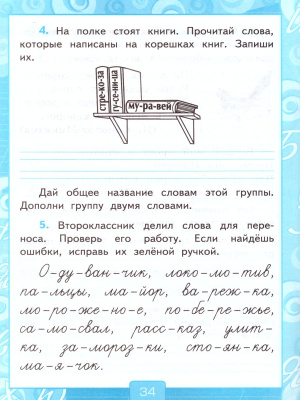 4. На полке стоят книги. Прочитай слова,
которые написаны на корешках книг. Запиши
их.
стре-ко-за
гу-се-ни-ца
му-ра-вей
Дай общее название словам этой группы.
Дополни группу двумя словами.
5. Второклассник делил слова для пере-
носа. Проверь его работу. Если найдёшь
ошибки, исправь их зелёной ручкой.
О-ду-ван-чик, локо-мо-тив,
па-льцы, ма-йор, ва-реж-ка,
мо-ро-же-но-е, по-бе-ре-жье,
са-мо-свал, расс-каз, улит-
ка, за-мороз-ки, сто-ян-ка,
ма-я-чок.
34